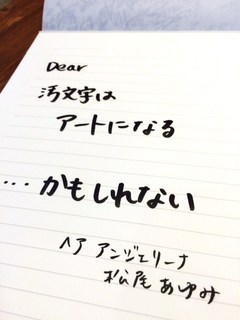 Dear
汚文字は
アートになる
... かもしれない
ヘア アンジェリーナ
松尾 あゆみ